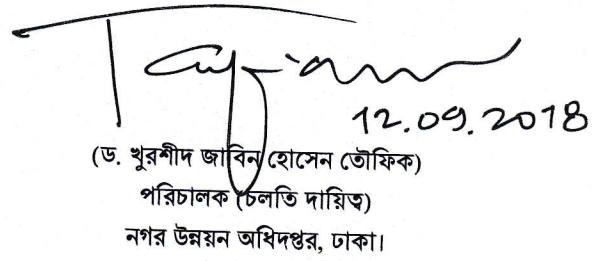 12.09.2018
(ড. খুরশীদ জাবিন হোসেন তৌফিক)
পরিচালক (চলতি দায়িত্ব)
নগর উন্নয়ন অধিদপ্তর, ঢাকা।